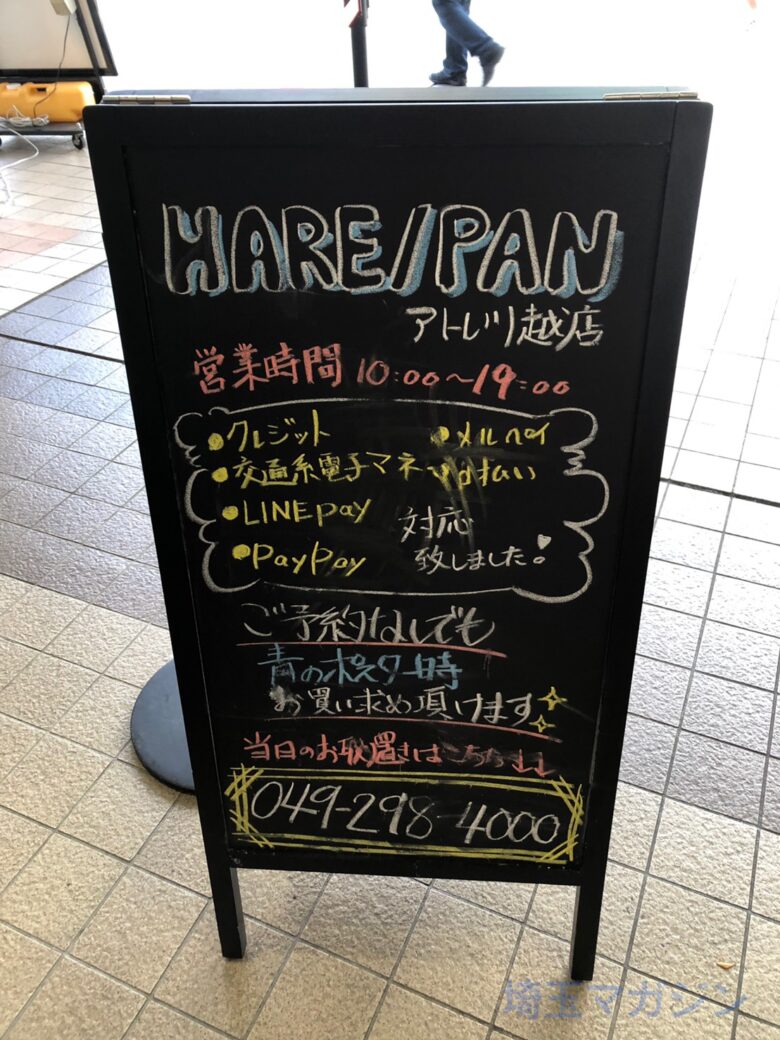 HARE/PAN
アトレ川越店
営業時間 10:00〜19:00
●クレジット ●メルペイ
●交通系電子マネー 払い
●LINE pay 対応
●PayPay 致しました!
ご予約なしでも
青のポスター時
お買い求め頂けます
当日のお取置きはこちら↓↓
049-298-4000
埼玉マガジン